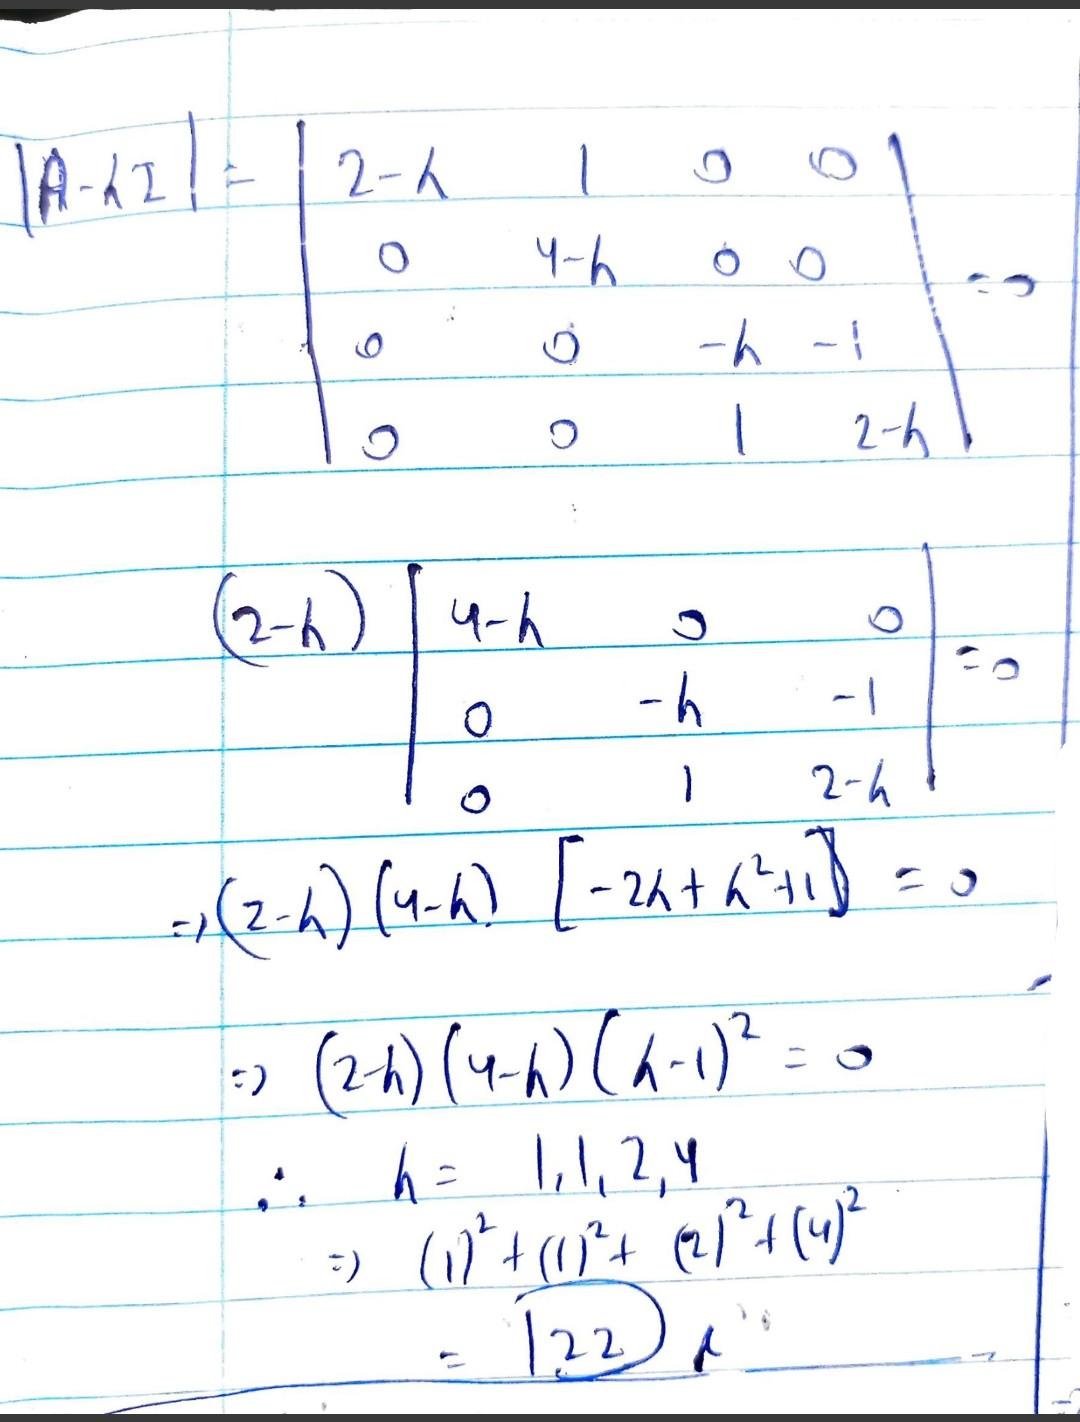 |A-λI| = | 2-λ 1 0 0 |
| 0 4-λ 0 0 | =0
| 0 0 -λ -1 |
| 0 0 1 2-λ |
(2-λ) | 4-λ 0 0 |
| 0 -λ -1 | =0
| 0 1 2-λ |
=> (2-λ) (4-λ) [-2λ + λ² +1] = 0
=> (2-λ) (4-λ) (λ-1)² = 0
∴ λ = 1, 1, 2, 4
=> (1)² + (1)² + (2)² + (4)²
= 22